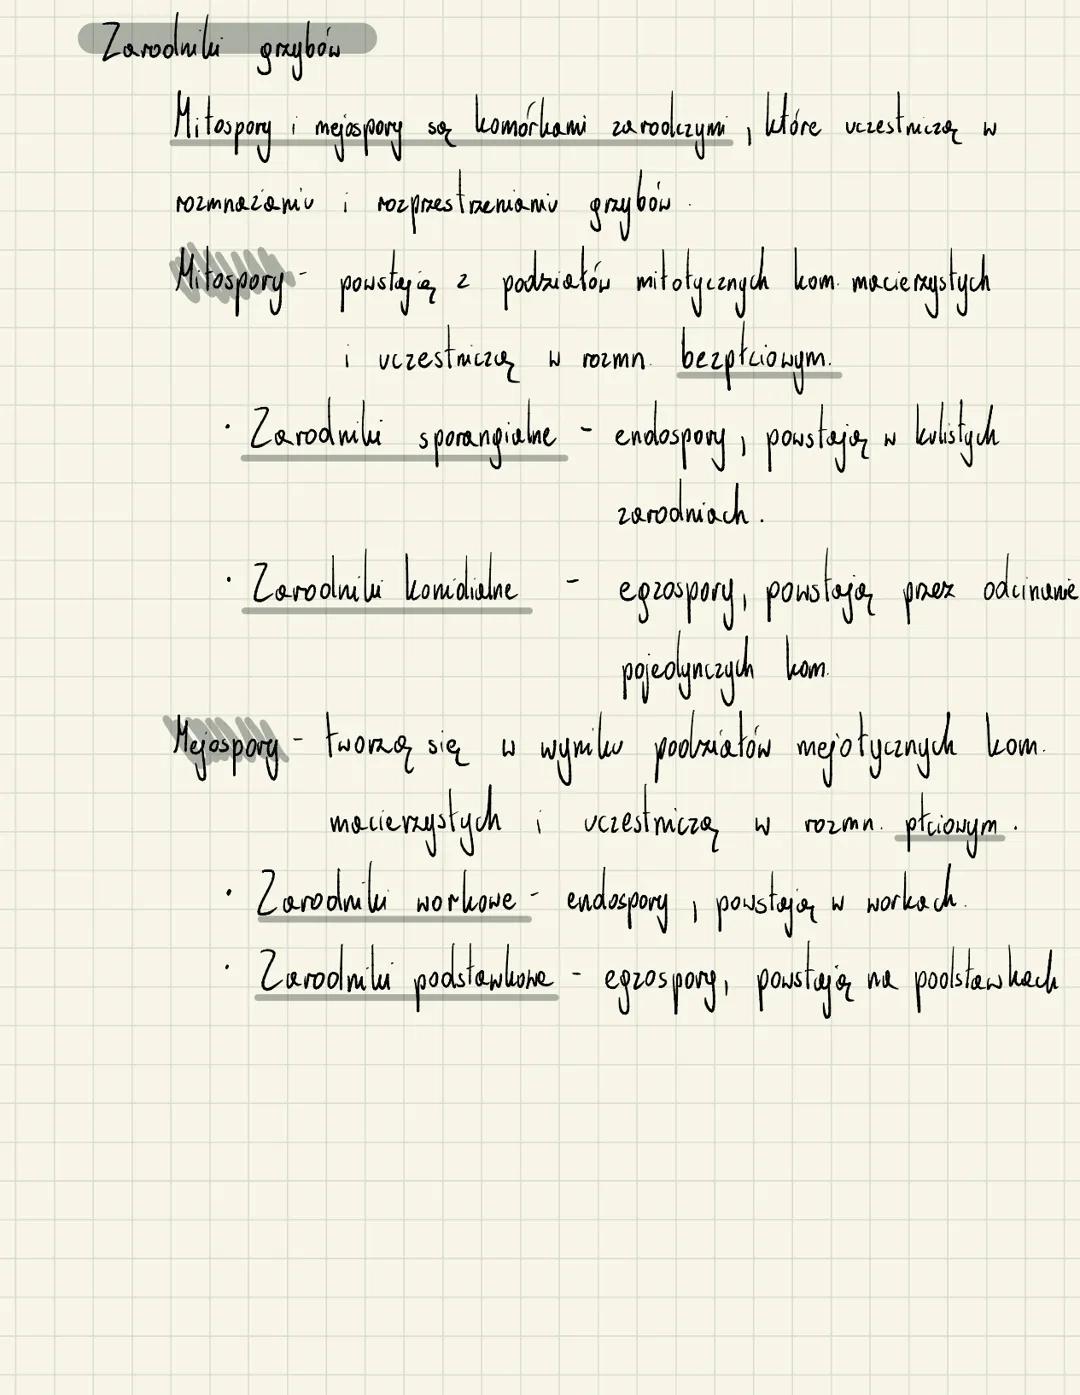 Zarodniki grzybów
Mitospory i mejospory są komórkami zarodczymi, które uczestniczą w
rozmnażaniu i rozprzestrzenianiu grzybów.
Mitospory - powstają z podziałów mitotycznych kom. macierzystych
i uczestniczą w rozmn. bezpłciowym.
· Zarodniki sporangialne - endospory, powstają w kulistych
zarodniach.
· Zarodniki konidialne - egzospory, powstają przez odcinanie
pojedynczych kom.
Mejospory - tworzą się w wyniku podziałów mejotycznych kom.
macierzystych i uczestniczą w rozmn. płciowym.
· Zarodniki workowe - endospory, powstają w workach.
· Zarodniki podstawkowe - egzospory, powstają na podstawkach